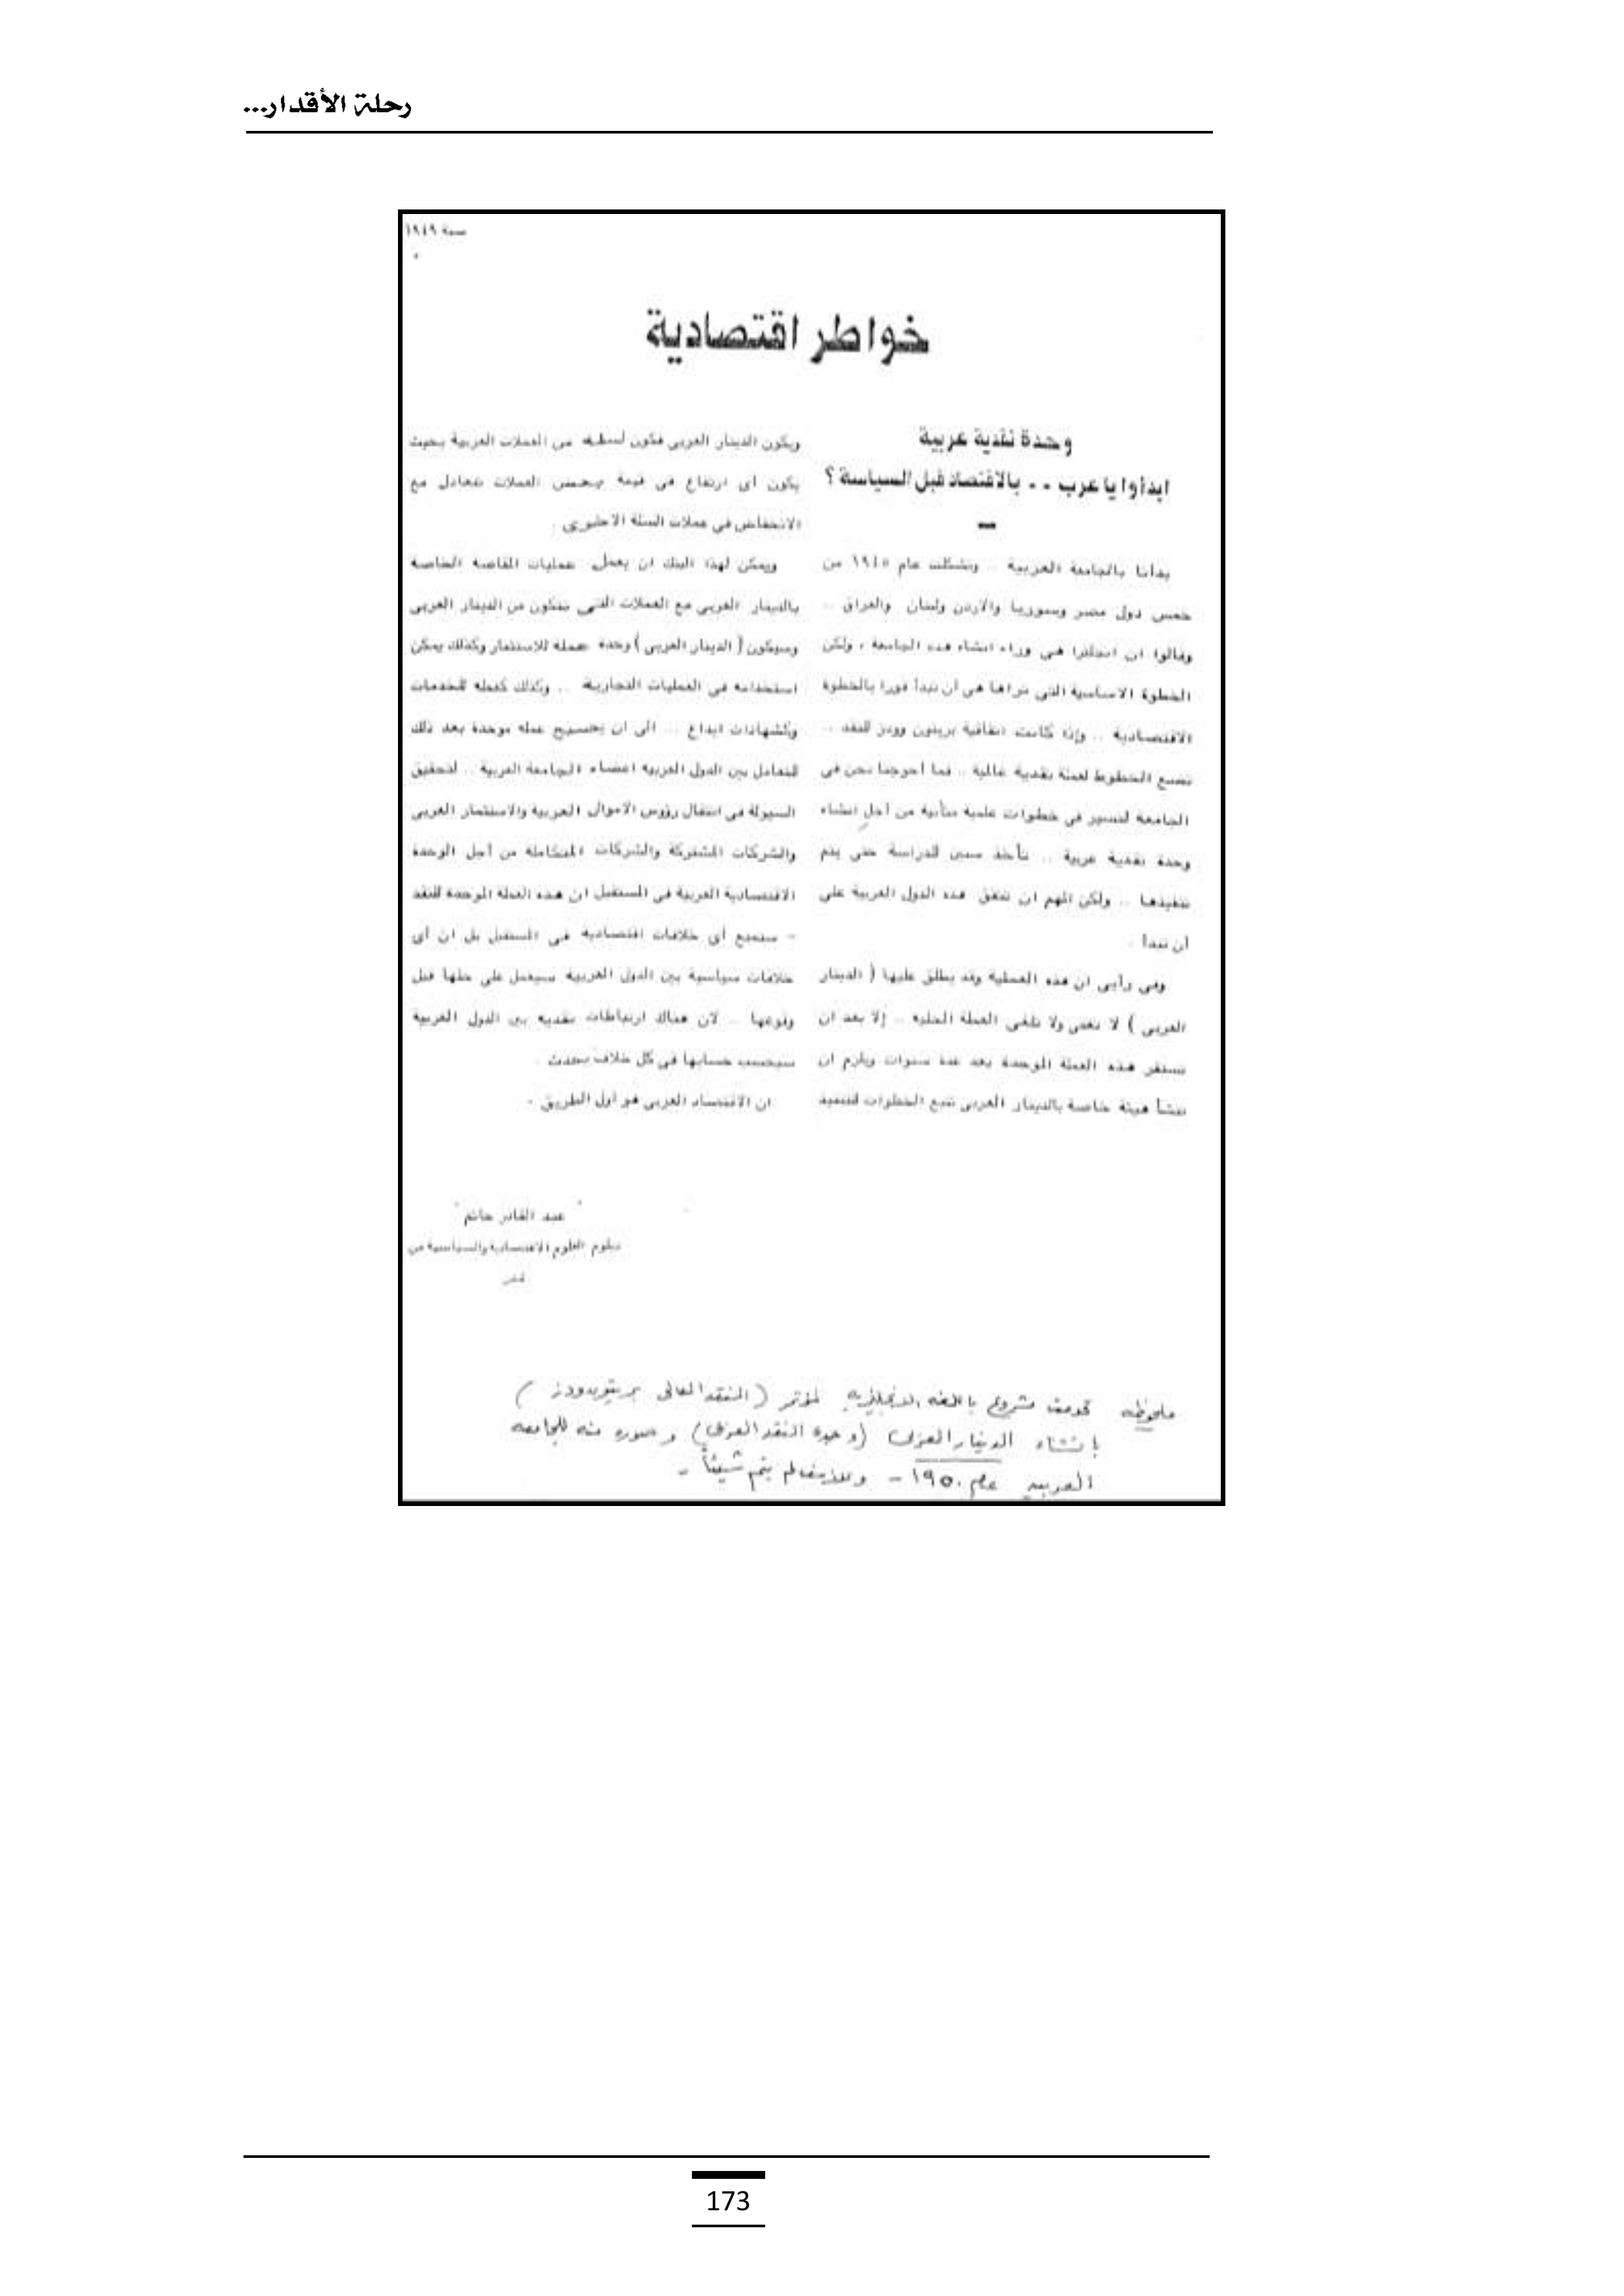 رحلة الأقدار...
سنة ١٩٤٩
خواطر اقتصادية
وحدة نقدية عربية
ابدأوا يا عرب .. بالاقتصاد قبل السياسة ؟
بدأنا بالجامعة العربية .. وتشكلت عام ١٩٤٥ من
خمس دول مصر وسوريا والأردن ولبنان والعراق ..
وقالوا ان انجلترا هى وراء انشاء هذه الجامعة ، ولكن
الخطوة الاساسية التى نراها هى أن نبدأ فورا بالخطوة
الاقتصادية .. وإذا كانت اتفاقية بريتون وودز للنقد ..
تضع الخطوط لعملة نقدية عالمية .. فما أحوجنا نحن فى
الجامعة لنسير فى خطوات علمية متأنية من أجل انشاء
وحدة نقدية عربية .. تأخذ سنين للدراسة حتى يتم
تنفيذها .. ولكن المهم ان تتفق هذه الدول العربية على
أن تبدأ .
وفى رأيى ان هذه العملية وقد يطلق عليها ( الدينار
العربى ) لا تغنى ولا تلغى العملة المحلية .. إلا بعد ان
تستقر هذه العملة الموحدة بعد عدة سنوات ويلزم ان
تنشأ هيئة خاصة بالدينار العربى تتبع الخطوات لتنفيذ
ويكون الدينار العربى من العملات العربية بحيث
يكون أى ارتفاع فى قيمة بعض العملات تتعادل مع
الانخفاض فى عملات السلة الاخرى .
ويمكن لهذا البنك ان يعمل عمليات المقاصة الخاصة
بالدينار العربى مع العملات التى يتكون من الدينار العربى
وسيكون ( الدينار العربى ) وحدة عملة للاستثمار وكذلك يمكن
استخدامه فى العمليات التجارية .. وكذلك كعملة للخدمات
وكشهادات ايداع ... الى ان يصبح عملة موحدة بعد ذلك
للتعامل بين الدول العربية اعضاء الجامعة العربية .. لتحقيق
السيولة فى انتقال رؤوس الاموال العربية والاستثمار العربى
والشركات المشتركة والشركات المتكاملة من أجل الوحدة
الاقتصادية العربية فى المستقبل ان هذه العملة الموحدة للنقد
- ستمنع أى خلافات اقتصادية فى المستقبل بل ان أى
خلافات سياسية بين الدول العربية سيعمل على حلها قبل
وقوعها .. لان هناك ارتباطات نقدية بين الدول العربية
سيحسب حسابها فى كل خلاف يحدث .
ان الاقتصاد العربى هو أول الطريق .
" عبد القادر حاتم "
دبلوم العلوم الاقتصادية والسياسية من
ملحوظه قدمت مشروع باللغه الانجليزيه لمؤتمر ( النقد العالمى بريتون وودز )
بإنشاء الدينار العربى ( وحدة النقد العربى ) وصوره منه للجامعه
العربيه عام ١٩٥٠ - وللأسف لم يتم شيئاً -
173